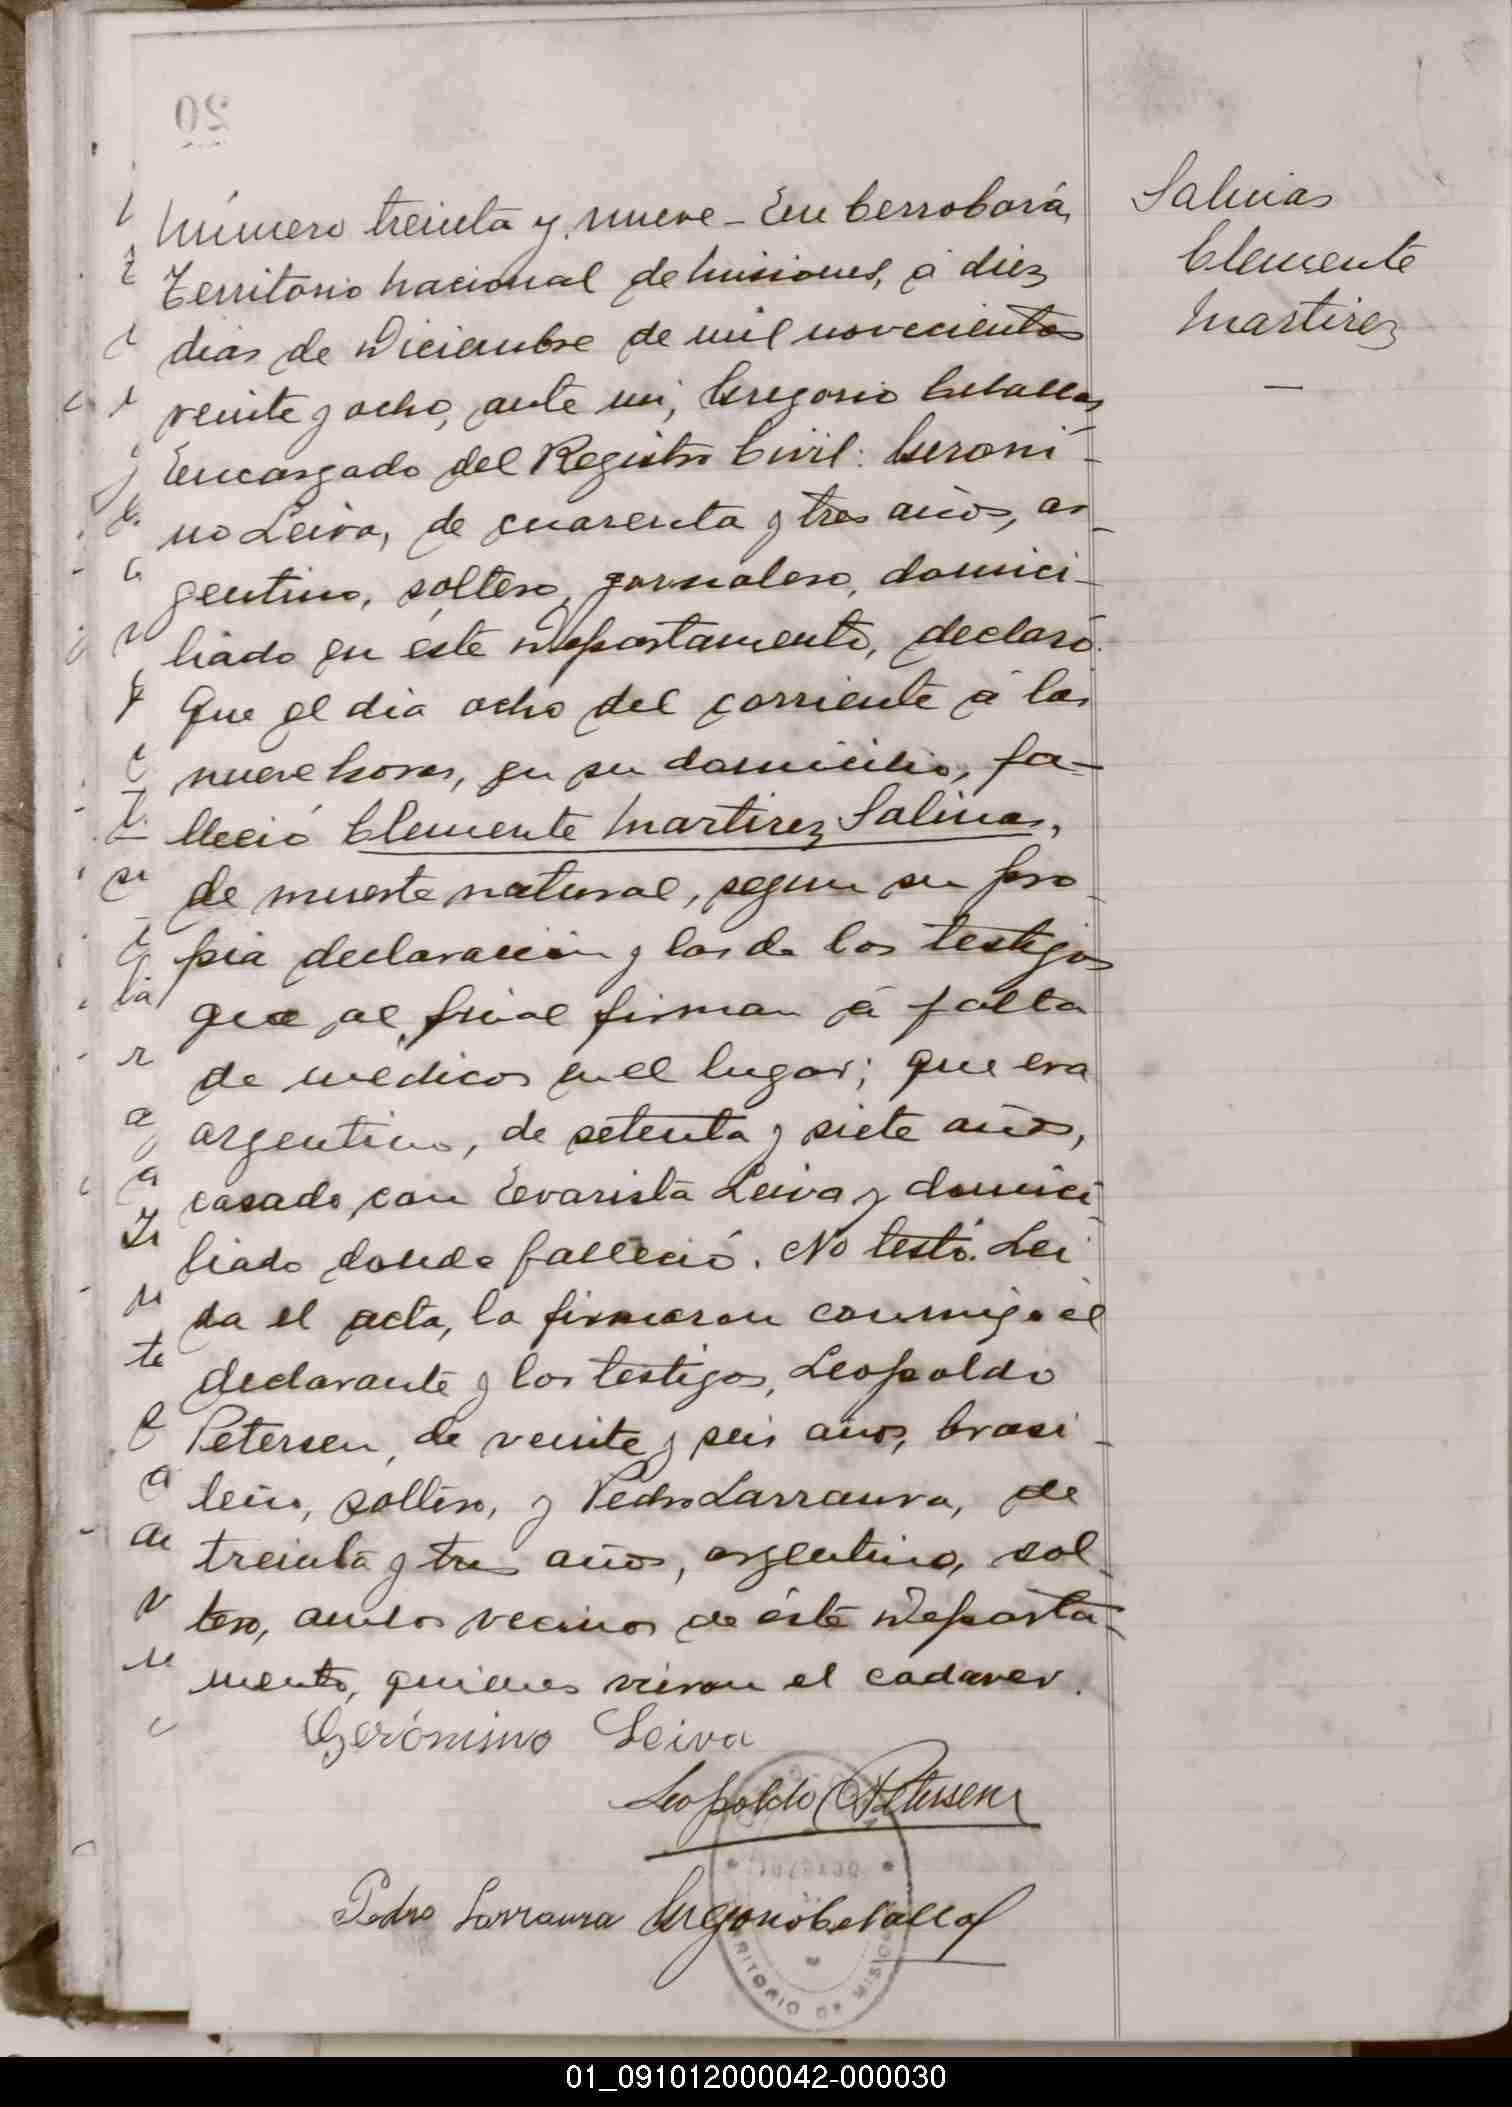 Número treinta y nueve - En Cerro Corá,
Territorio Nacional de Misiones, á diez
dias de Diciembre de mil novecientos
veinte y ocho, ante mi, Gregorio Ceballos
Encargado del Registro Civil: Geroni-
mo Leiva, de cuarenta y tres años, ar-
gentino, soltero, jornalero, domici-
liado en éste Departamento, declaró:
Que el dia ocho del corriente á las
nueve horas, en su domicilio, fa-
lleció Clemente Martirez Salinas,
de muerte natural, segun su pro-
pia declaración y las de los testigos
que al final firman á falta
de médicos en el lugar; que era
argentino, de setenta y siete años,
casado con Evarista Leiva y domici-
liado donde falleció. No testó. Lei-
da el acta, la firmaron conmigo el
declarante y los testigos, Leopoldo
Petersen, de veinte y seis años, brasi-
leño, soltero, y Pedro Larraura, de
treinta y tres años, argentino, sol-
tero, ambos vecinos de éste Departa-
mento, quienes vieron el cadaver.
Gerónimo Leiva
Leopoldo Petersen
Pedro Larraura Gregorio Ceballos
Salinas
Clemente
Martirez
20
TERRITORIO DE MISIONES
01_091012000042-000030